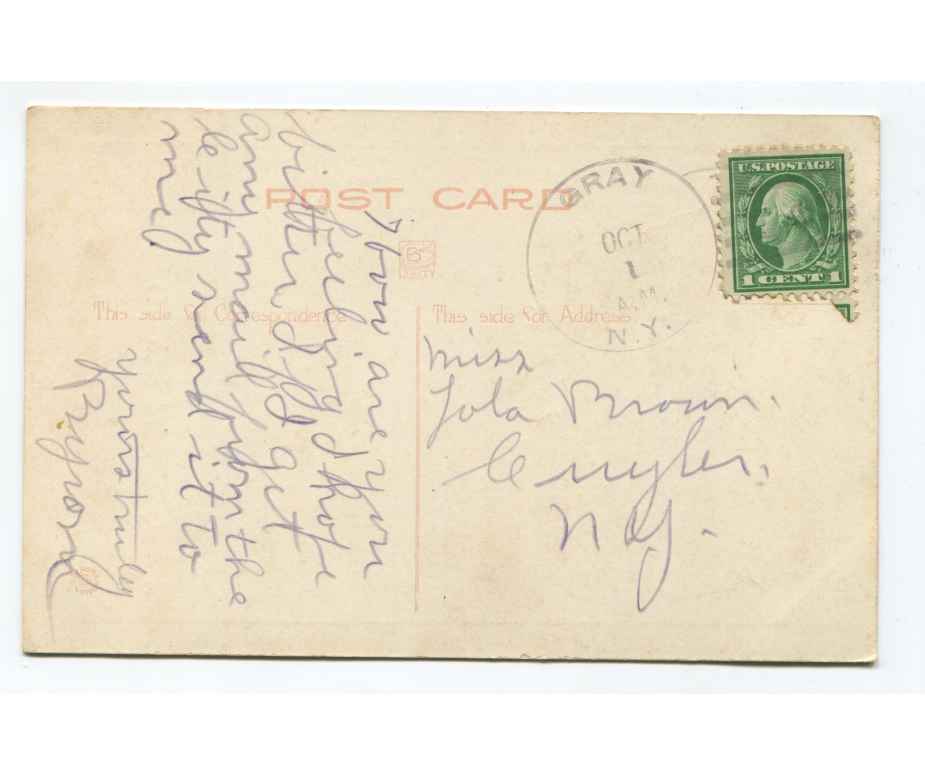 POST CARD
This side for Correspondence
This side for Address
GRAY
OCT
1
A.M.
N.Y.
U.S. POSTAGE
1 CENT 1
How are you
feeling I hope
bitter If I get
any mail from the
send it to
me
yours truly
Miss
Lola Brown.
Cuyler.
N.Y.